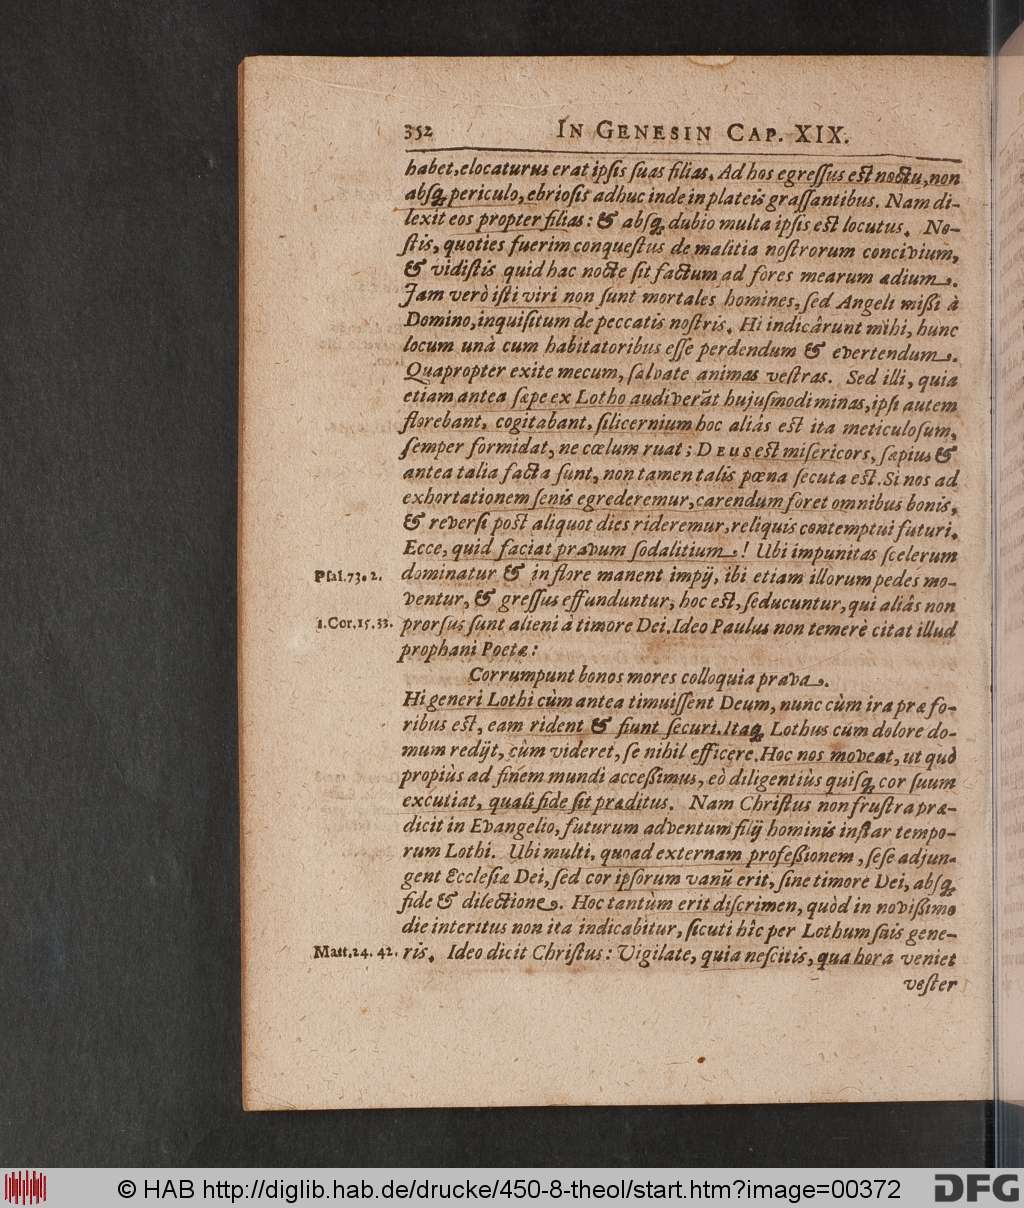 352 IN GENESIN CAP. XIX.
habet, elocaturus erat ipſis ſuas filias. Ad hos egreſſus eſt noctu, non
abſq; periculo, ebrioſis adhuc inde in plateis graſſantibus. Nam di-
lexit eos propter filias: & abſq; dubio multa ipſis eſt locutus. No-
ſtis, quoties fuerim conqueſtus de malitia noſtrorum concivium,
& vidiſtis quid hac nocte ſit factum ad fores mearum ædium.
Jam verò iſti viri non ſunt mortales homines, ſed Angeli miſſi à
Domino, inquiſitum de peccatis noſtris. Hi indicârunt mihi, hunc
locum unà cum habitatoribus eſſe perdendum & evertendum.
Quapropter exite mecum, ſalvate animas veſtras. Sed illi, quia
etiam antea ſæpe ex Lotho audiverāt hujuſmodi minas, ipſi autem
florebant, cogitabant, ſilicernium hoc aliâs eſt ita meticuloſum,
ſemper formidat, ne cœlum ruat; DEUS eſt miſericors, ſæpius &
antea talia facta ſunt, non tamen talis pœna ſecuta eſt. Si nos ad
exhortationem ſenis egrederemur, carendum foret omnibus bonis,
& reverſi poſt aliquot dies rideremur, reliquis contemptui futuri.
Ecce, quid faciat pravum ſodalitium! Ubi impunitas ſcelerum
Pſal. 73. 2. dominatur & in flore manent impij, ibi etiam illorum pedes mo-
ventur, & greſſus effunduntur, hoc eſt, ſeducuntur, qui aliâs non
1. Cor. 15. 33. prorſus ſunt alieni à timore Dei. Ideo Paulus non temerè citat illud
prophani Poetæ:
Corrumpunt bonos mores colloquia prava.
Hi generi Lothi cùm antea timuiſſent Deum, nunc cùm ira præ fo-
ribus eſt, eam rident & fiunt ſecuri. Itaq; Lothus cum dolore do-
mum redijt, cùm videret, ſe nihil efficere. Hoc nos moveat, ut quò
propiùs ad finem mundi acceſſimus, eò diligentiùs quiſq; cor ſuum
excutiat, quali fide ſit præditus. Nam Chriſtus non fruſtra præ-
dicit in Evangelio, futurum adventum filij hominis inſtar tempo-
rum Lothi. Ubi multi, quoad externam profeſſionem, ſeſe adjun-
gent Eccleſiæ Dei, ſed cor ipſorum vanū erit, ſine timore Dei, abſq;
fide & dilectione. Hoc tantùm erit diſcrimen, quòd in noviſſimo
die interitus non ita indicabitur, ſicuti hîc per Lothum ſuis gene-
Matt. 24. 42. ris. Ideo dicit Chriſtus: Vigilate, quia neſcitis, qua hora veniet
veſter
© HAB http://diglib.hab.de/drucke/450-8-theol/start.htm?image=00372
DFG